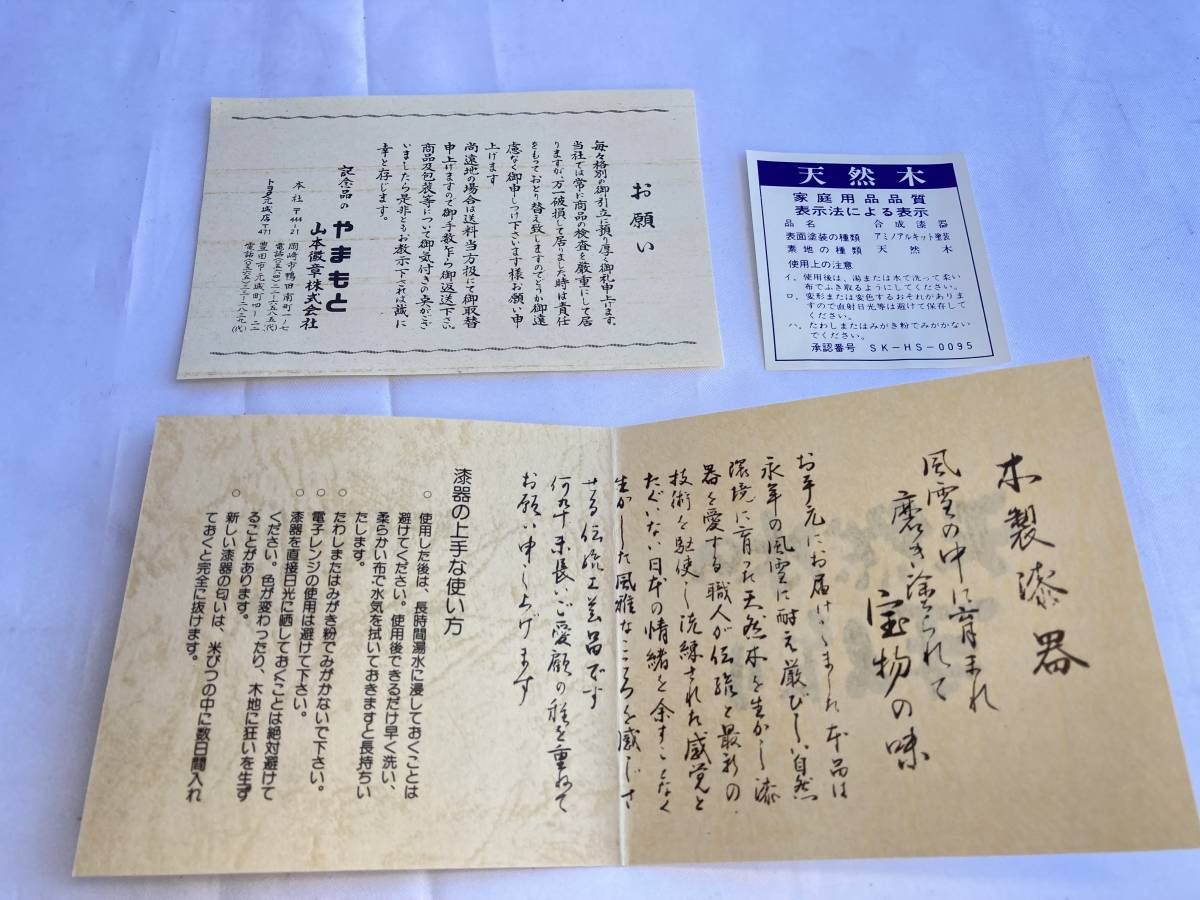 お願い
毎々格別の御引立に預り厚く御礼申上げます。
当社では常に商品の検査を厳重にして居
りますが、万一破損して居りました時は責任
をもっておとり替え致しますのでどうか御遠
慮なく御申しつけ下さいます様お願い申
上げます
尚遠地の場合は送料当方扱にて御取替
申上げますので御手数乍ら御返送下さい。
商品及包装等について御気付きの点がござ
いましたら是非ともお教示下されば誠に
幸と存じます。
記念品の やまもと
山本徽章株式会社
本社 〒444-21 岡崎市鴨田南町一ノ七
トヨタ元城店 〒471
豊田市元城町四ノ二二
天然木
家庭用品品質
表示法による表示
品名 合成漆器
表面塗装の種類 アミノアルキット塗装
素地の種類 天然木
使用上の注意
イ、使用後は、湯または水で洗って柔い
布でふき取るようにしてください。
ロ、変形または変色するおそれがありま
すので直射日光等は避けて保存して
ください。
ハ、たわしまたはみがき粉でみがかない
でください。
承認番号 SK-HS-0095
木製漆器
風雪の中に育まれ
磨き塗られて
宝物の味
お手元にお届けしました本品は
永年の風雪に耐え厳びしい自然
環境に育った天然木を生かし漆
器を愛する職人が伝統と最新の
技術を駆使し洗練された感覚と
たぐいない日本の情緒を余すことなく
生かした風雅なこころを感じさ
せる伝統工芸品です
何卆末長いご愛顧の程を重ねて
お願い申し上げます
漆器の上手な使い方
○ 使用した後は、長時間湯水に浸しておくことは
避けてください。使用後できるだけ早く洗い、
柔らかい布で水気を拭いておきますと長持ちい
たします。
○ たわしまたはみがき粉でみがかないで下さい。
○ 電子レンジの使用は避けて下さい。
○ 漆器を直接日光に晒しておくことは絶対避けて
ください。色が変わったり、木地に狂いを生ず
ることがあります。
○ 新しい漆器の匂いは、米びつの中に数日間入れ
ておくと完全に抜けます。